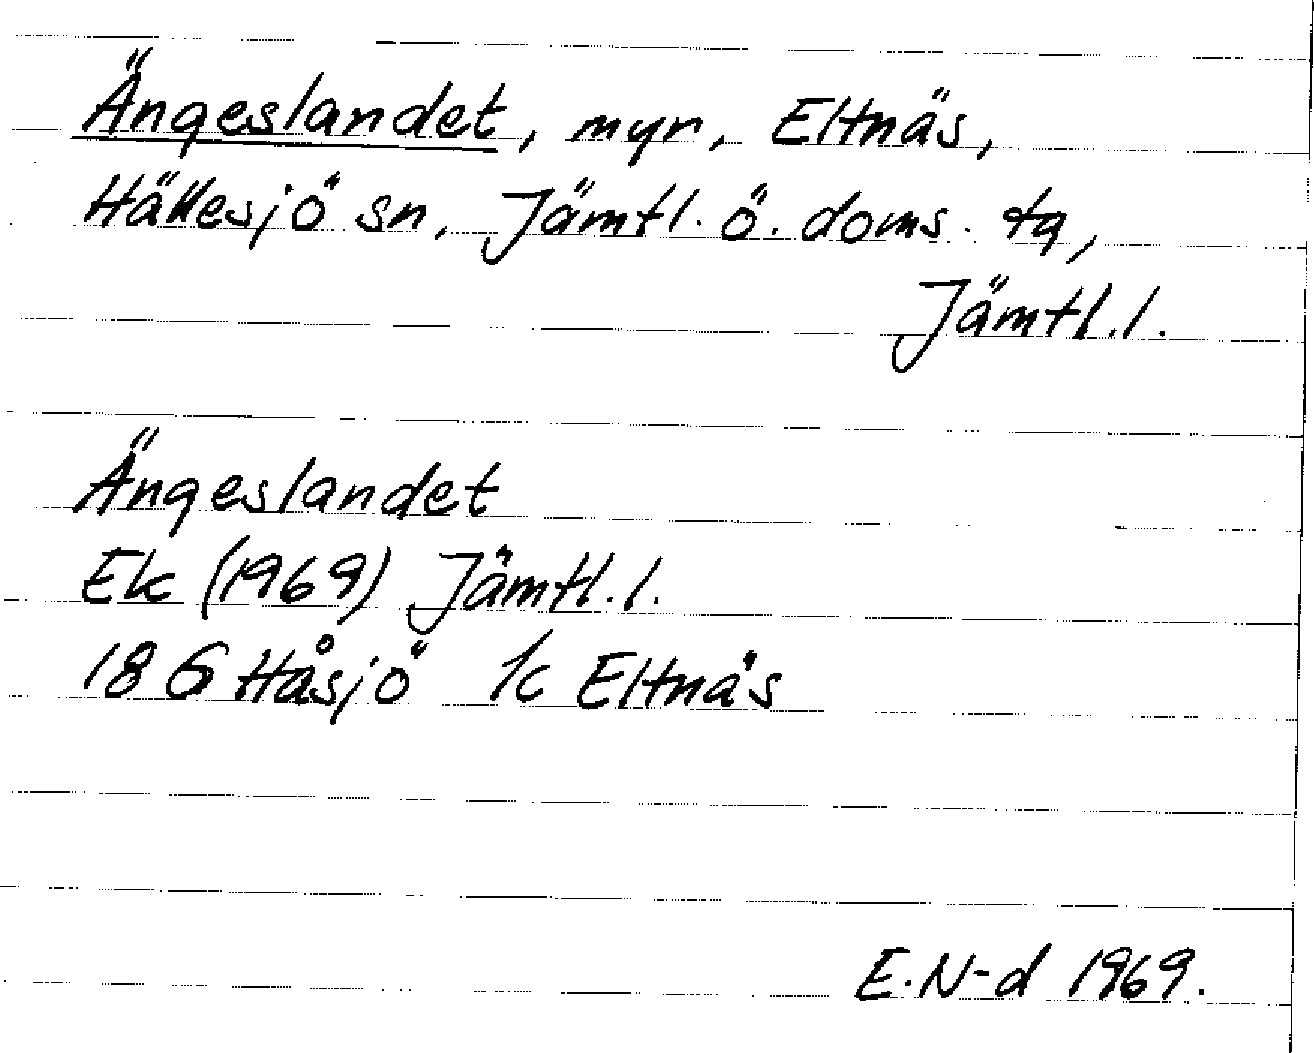 Ängeslandet, myr, Eltnäs,
Hällesjö sn, Jämtl. ö. doms. tg,
Jämtl. l.
Ängeslandet
Ek (1969) Jämtl. l.
18 G Håsjö 1c Eltnäs
E. N-d 1969.